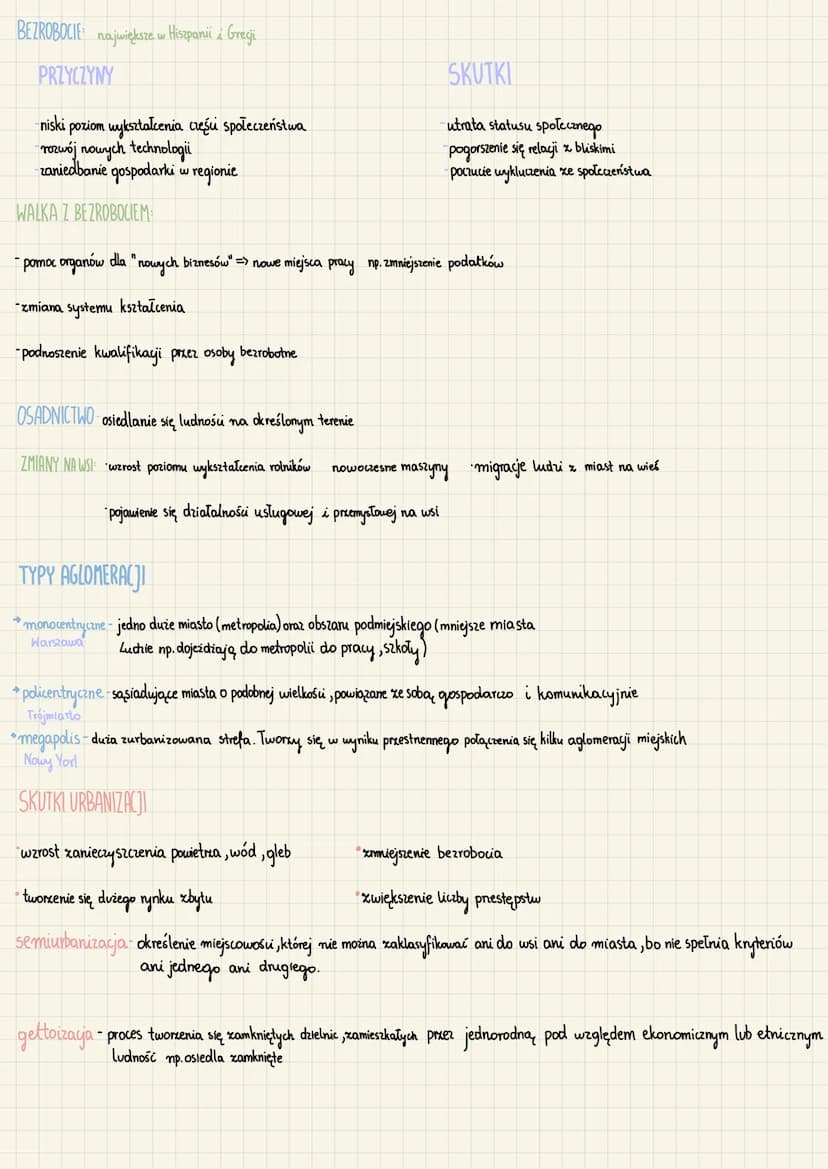 BEZROBOCIE: największe w Hiszpanii i Grecji
PRZYCZYNY
SKUTKI
-niski poziom wykształcenia części społeczeństwa
-rozwój nowych technologii
-zaniedbanie gospodarki w regionie
-utrata statusu społecznego
-pogorszenie się relacji z bliskimi
-poczucie wykluczenia ze społeczeństwa
WALKA Z BEZROBOCIEM:
- pomoc organów dla "nowych biznesów" => nowe miejsca pracy np. zmniejszenie podatków
-zmiana systemu kształcenia
-podnoszenie kwalifikacji przez osoby bezrobotne
OSADNICTWO- osiedlanie się ludności na określonym terenie
ZMIANY NA WSI: •wzrost poziomu wykształcenia rolników nowoczesne maszyny •migracje ludzi z miast na wieś
•pojawienie się działalności usługowej i przemysłowej na wsi
TYPY AGLOMERACJI
→ monocentryczne - jedno duże miasto (metropolia) oraz obszaru podmiejskiego (mniejsze miasta
Warszawa ludzie np. dojeżdżają do metropolii do pracy, szkoły)
→ policentryczne - sąsiadujące miasta o podobnej wielkości, powiązane ze sobą gospodarczo i komunikacyjnie
Trójmiasto
•megapolis - duża zurbanizowana strefa. Tworzy się w wyniku przestrzennego połączenia się kilku aglomeracji miejskich
Nowy York
SKUTKI URBANIZACJI
•wzrost zanieczyszczenia powietrza, wód, gleb
•zmniejszenie bezrobocia
•tworzenie się dużego rynku zbytu
•zwiększenie liczby przestępstw
semiurbanizacja- określenie miejscowości, której nie można zaklasyfikować ani do wsi ani do miasta, bo nie spełnia kryteriów
ani jednego ani drugiego.
gettoizacja - proces tworzenia się zamkniętych dzielnic, zamieszkałych przez jednorodną pod względem ekonomicznym lub etnicznym
ludność np. osiedla zamknięte